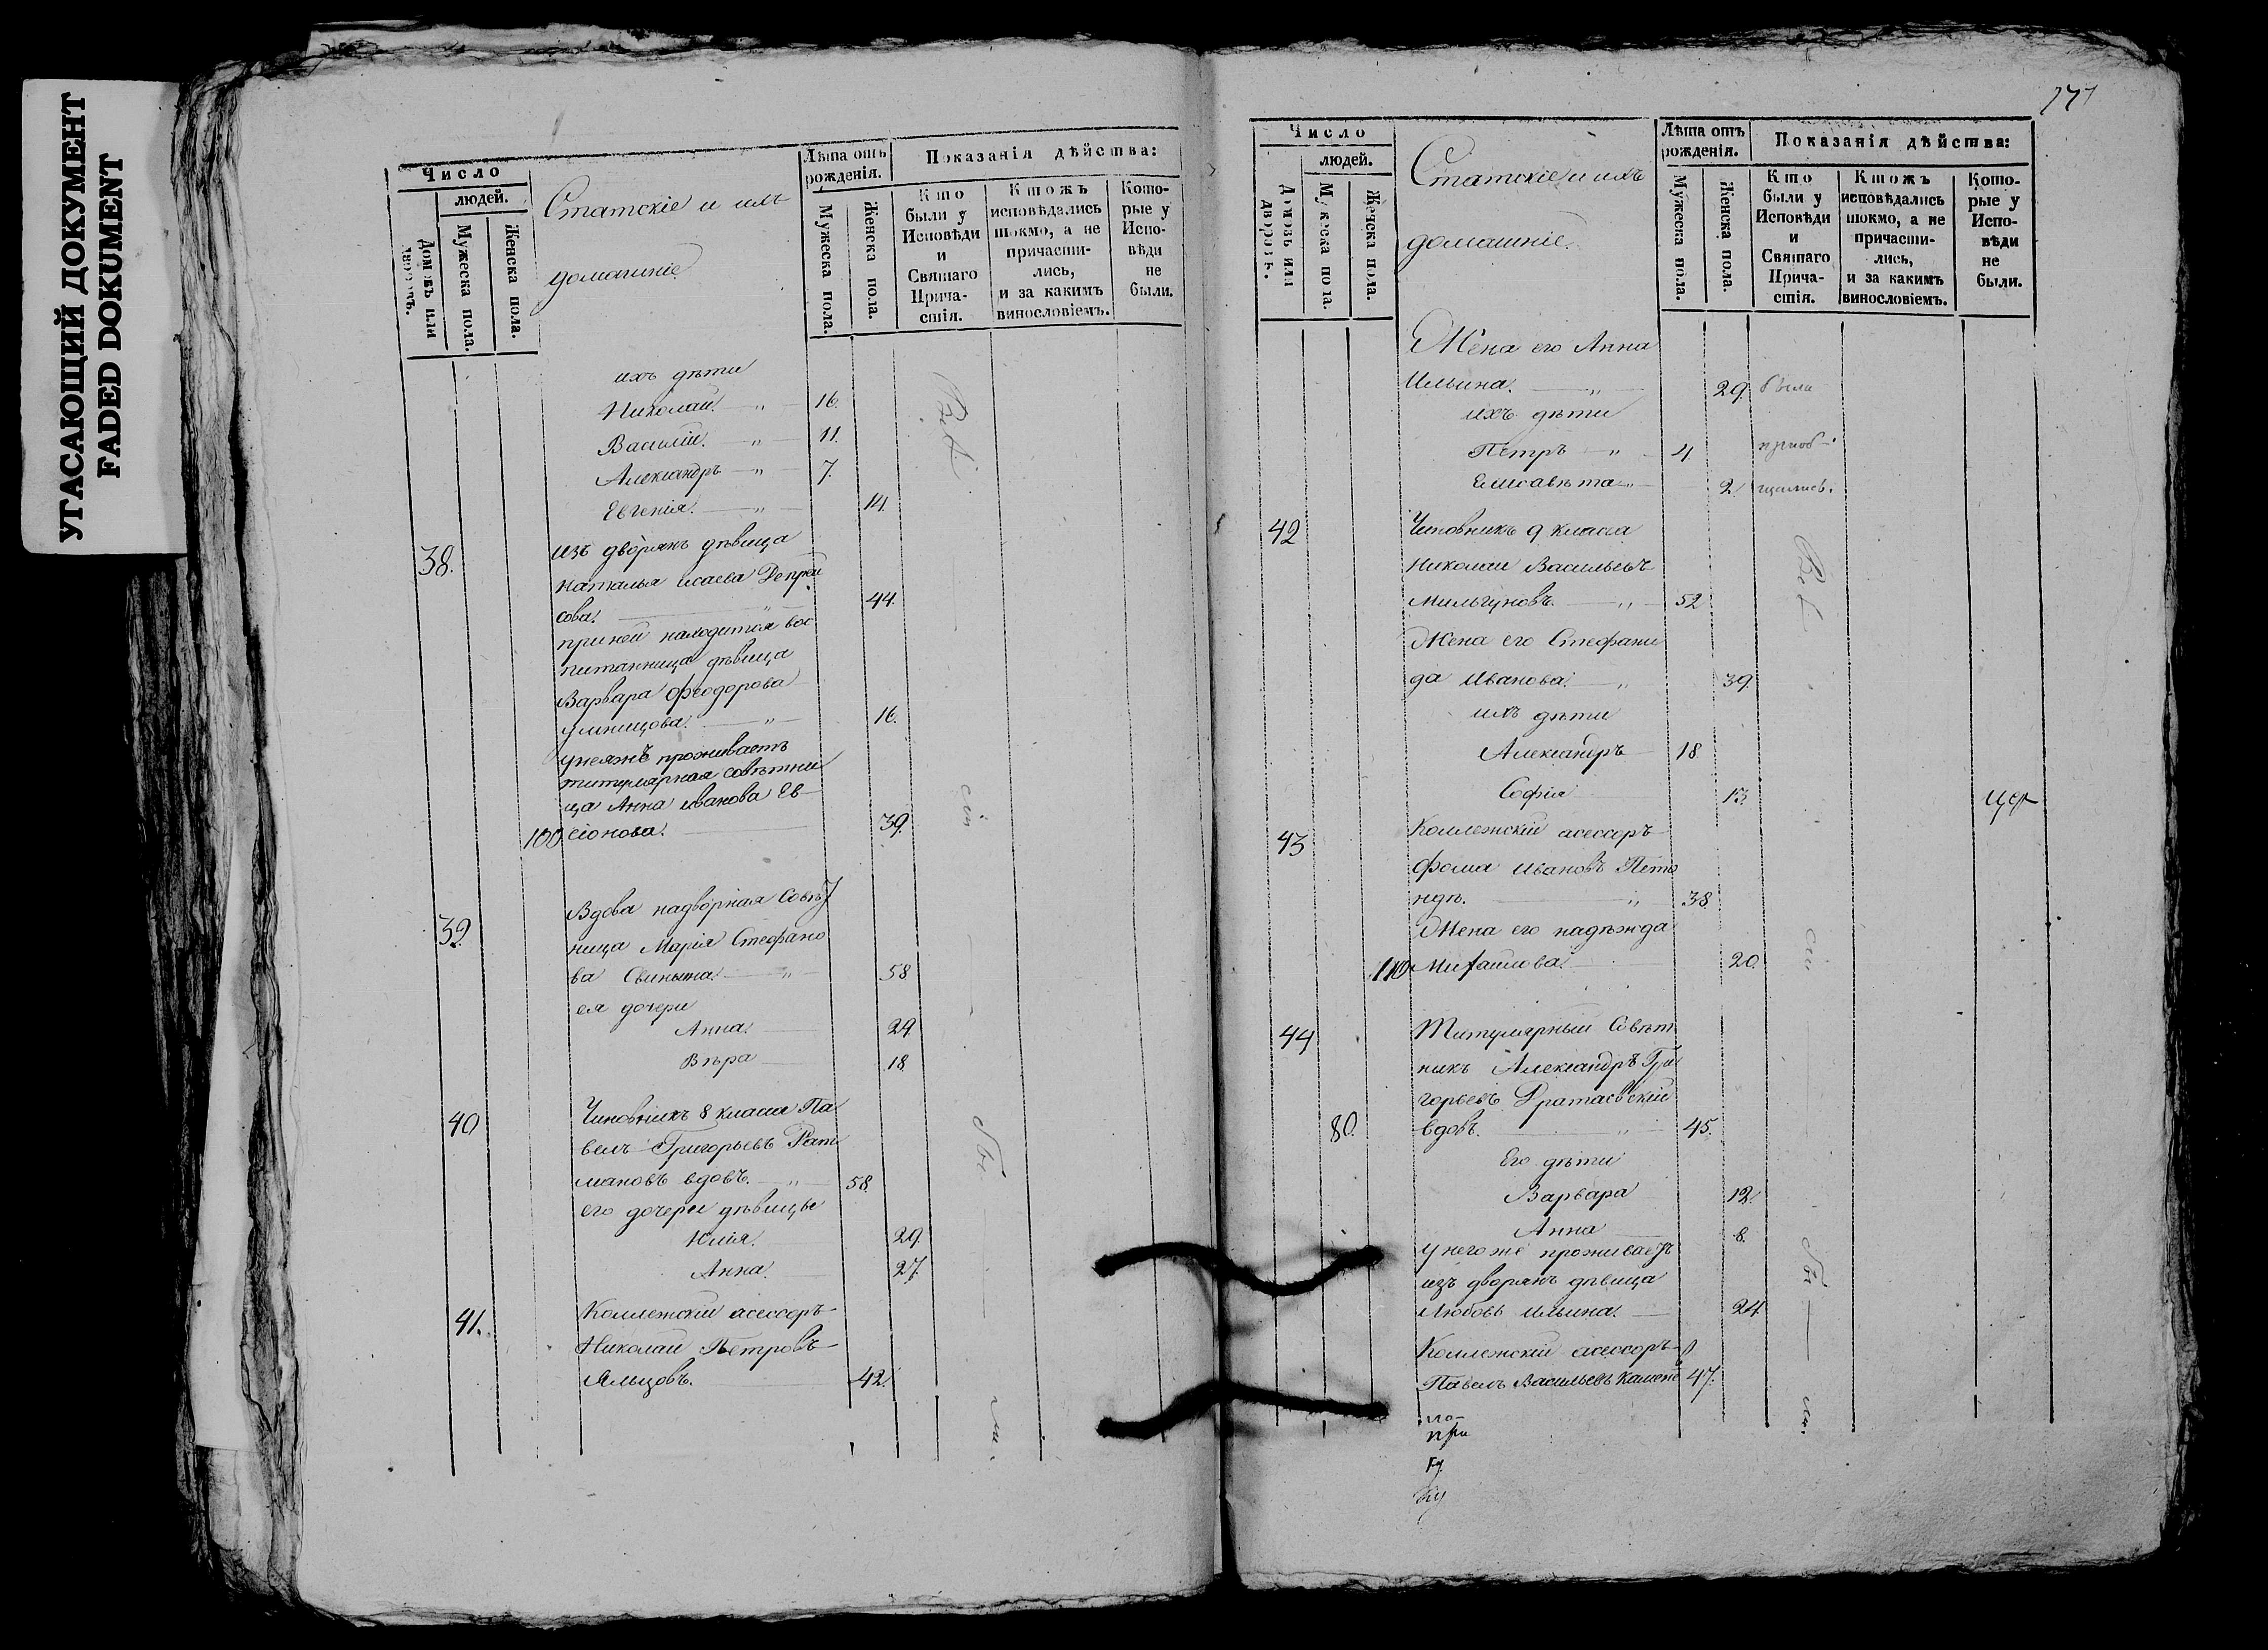 УГАСАЮЩИЙ ДОКУМЕНТ
FADED DOKUMENT
Число
людей.
Домовъ или дворовъ.
Мужеска пола.
Женска пола.
Статскіе и ихъ
домашніе
Лѣта отъ рожденія.
Мужеска пола.
Женска пола.
Показанія дѣйства:
Кто были у Исповѣди и Святаго Прича-стія.
Ктожъ исповѣдались токмо, а не причасти-лись, и за какимъ винословіемъ.
Кото-рые у Испо-вѣди не были.
ихъ дѣти
Николай. — „ — 16.
Василій. — „ — 11.
Александръ — „ — 7.
Евгенія. — „ — 14.
38. изъ дворянъ дѣвица
Наталья Исаева
сова. — „ — 44.
при ней находится вос
питанница дѣвица
Варвара Феодорова
— „ — 16.
у неяжъ проживаетъ
титулярная совѣтни
ца Анна Иванова Ев
100 сіонова. — 39.
39. Вдова надворная Совѣт
ница Марія Стефано
ва Свиньина. — „ — 58
ея дочери
Анна. — 29
Вѣра — 18
40 Чиновникъ 8 класса Па
велъ Григорьевъ Рат
мановъ вдовъ. — „ — 58.
его дочери дѣвицы
Юлія. 29.
Анна. — 27.
41. Коллежскій асессоръ
Николай Петровъ
Яльцовъ. — 42.
171
Число
людей.
Домовъ или дворовъ.
Мужеска пола.
Женска пола.
Статскіе и ихъ
домашніе.
Лѣта отъ рожденія.
Мужеска пола.
Женска пола.
Показанія дѣйства:
Кто были у Исповѣди и Святаго Прича-стія.
Ктожъ исповѣдались токмо, а не причасти-лись, и за какимъ винословіемъ.
Кото-рые у Испо-вѣди не были.
Жена его Анна
Ильина. — „ — 29. были
ихъ дѣти
Петръ — „ — 4. приоб-
Елисавета — „ — 2. щались.
42 Чиновникъ 9 класса
Николай Васильевъ
Мильгуновъ. — „ — 52
Жена его Стефани
да Иванова. — „ 39.
ихъ дѣти
Александръ — 18.
Софія — 13.
43 Коллежскій асессоръ
Фома Ивановъ
— „ — 38.
Жена его Надежда
110 Михайлова. — 20.
44 Титулярный Совѣт
никъ Александръ Гри
горьевъ Братаевскій
80. вдовъ. — „ — 45.
Его дѣти
Варвара 12.
Анна — 8.
у негоже проживаетъ
изъ дворянъ дѣвица
Любовь Ильина. — 24
Коллежскій асессоръ
Павелъ Васильевъ 47.